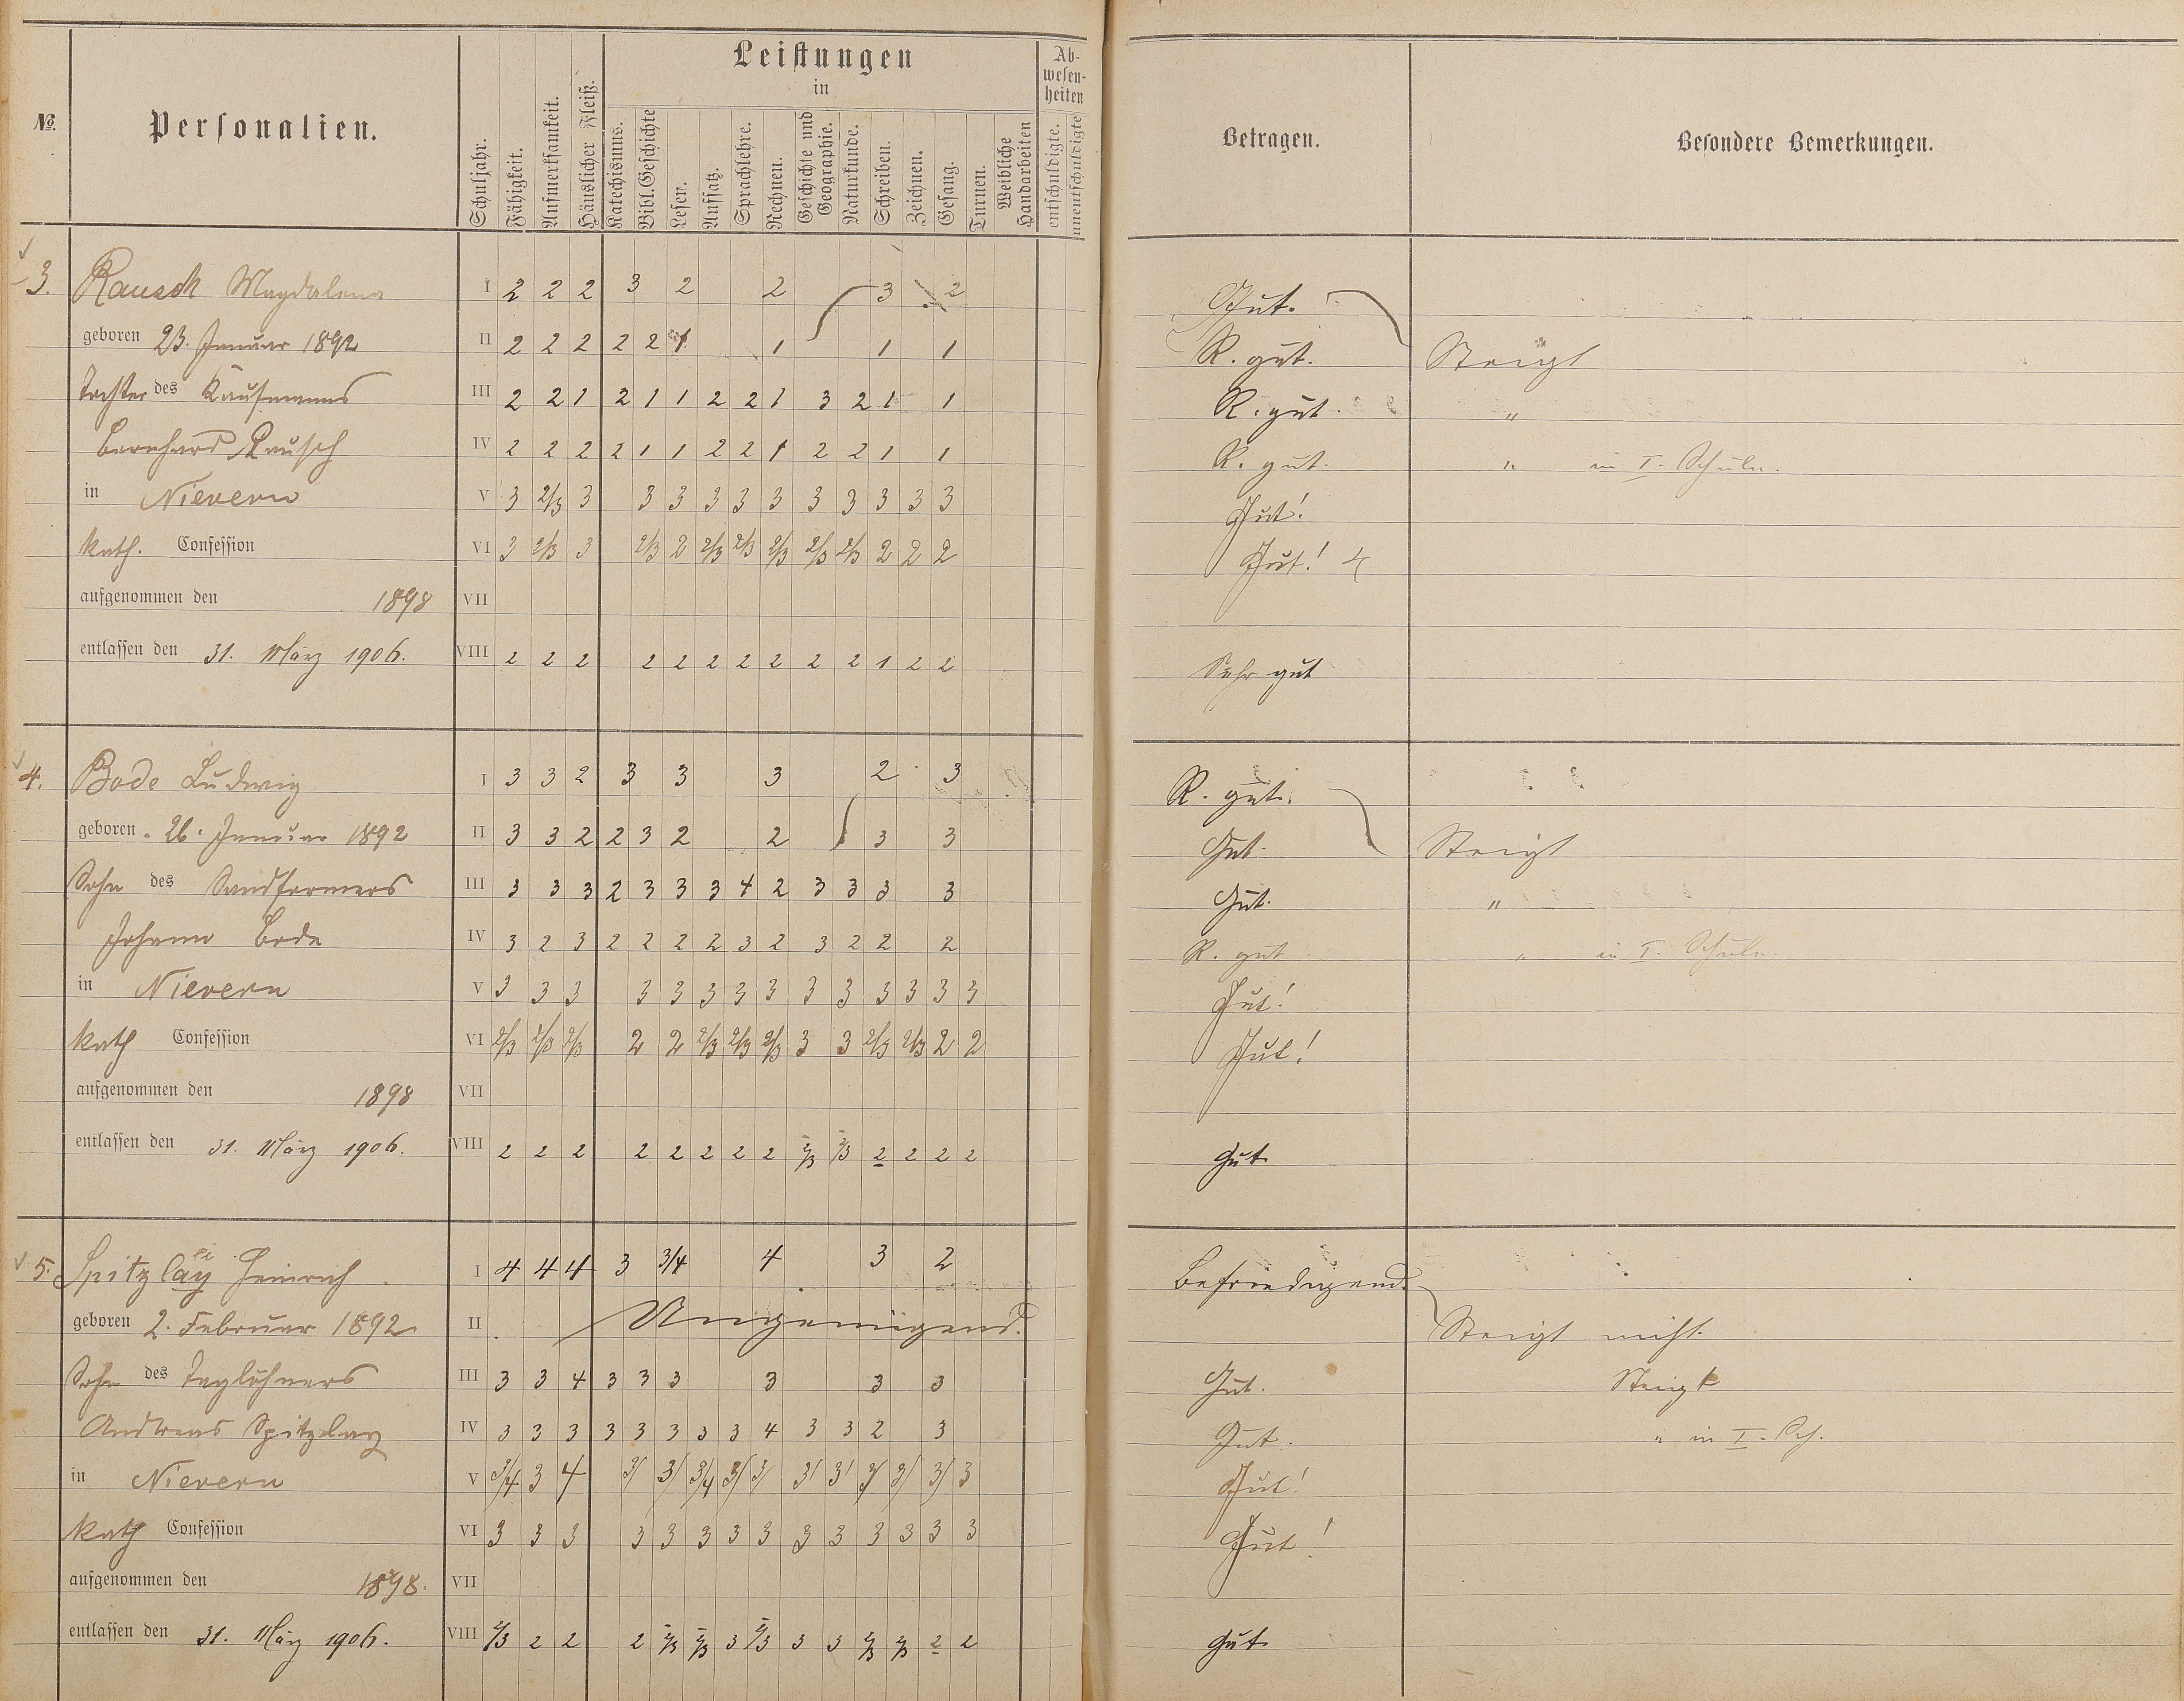 Leistungen
in
Ab-
wesen-
heiten
№.
Personalien.
Schuljahr.
Fähigkeit.
Aufmerksamkeit.
Häuslicher Fleiß.
Katechismus.
Bibl. Geschichte
Lesen.
Aufsatz.
Sprachlehre.
Rechnen.
Geschichte und
Geographie.
Naturkunde.
Schreiben.
Zeichnen.
Gesang.
Turnen.
Weibliche
Handarbeiten
entschuldigte.
unentschuldigte
Betragen.
Besondere Bemerkungen.
3. Rausch Magdalena I 2 2 2 3 2 2 3 2 Gut.
geboren 23. Januar 1892 II 2 2 2 2 2 1 1 1 1 R. gut. Steigt
Tochter des Kaufmanns III 2 2 1 2 1 1 2 2 1 3 2 1 1 R. gut. "
Bernhard Rausch IV 2 2 2 2 1 1 2 2 1 2 2 1 1 R. gut. " in I. Schule.
in Nievern V 3 2/3 3 3 3 3 3 3 3 3 3 3 3 Gut!
kath. Confession VI 3 2/3 3 2/3 2 2/3 2/3 2/3 2/3 2/3 2 2 2 Gut!
aufgenommen den 1898 VII
entlassen den 31. März 1906. VIII 2 2 2 2 2 2 2 2 2 2 1 2 2 Sehr gut
4. Bode Ludwig I 3 3 2 3 3 3 2 3 R. gut.
geboren 26. Januar 1892 II 3 3 2 2 3 2 2 3 3 Gut. Steigt
Sohn des Sandformers III 3 3 3 2 3 3 3 4 2 3 3 3 3 Gut. "
Johann Bode IV 3 2 3 2 2 2 2 3 2 3 2 2 2 R. gut " in I. Schule.
in Nievern V 3 3 3 3 3 3 3 3 3 3 3 3 3 3 Gut!
kath Confession VI 2/3 2/3 2/3 2 2 2/3 2/3 2/3 3 3 2/3 2/3 2 2 Gut!
aufgenommen den 1898 VII
entlassen den 31. März 1906. VIII 2 2 2 2 2 2 2 2 2/3 2/3 2 2 2 2 Gut
5. Spitzlay Heinrich I 4 4 4 3 3/4 4 3 2 Befriedigend.
geboren 2. Februar 1892. II Ungenügend. Steigt nicht.
Sohn des Taglöhners III 3 3 4 3 3 3 3 3 3 Gut. Steigt
Andreas Spitzlay IV 3 3 3 3 3 3 3 3 4 3 3 2 3 Gut. " in I. Sch.
in Nievern V 3/4 3 4 3/ 3/ 3/4 3/ 3/ 3/ 3/ 3/ 3/ 3/ 3 Gut!
kath Confession VI 3 3 3 3 3 3 3 3 3 3 3 3 3 3 Gut!
aufgenommen den 1898. VII
entlassen den 31. März 1906. VIII 2/3 2 2 2 2/3 2/3 3 2/3 3 3 2/3 2/3 2 2 Gut